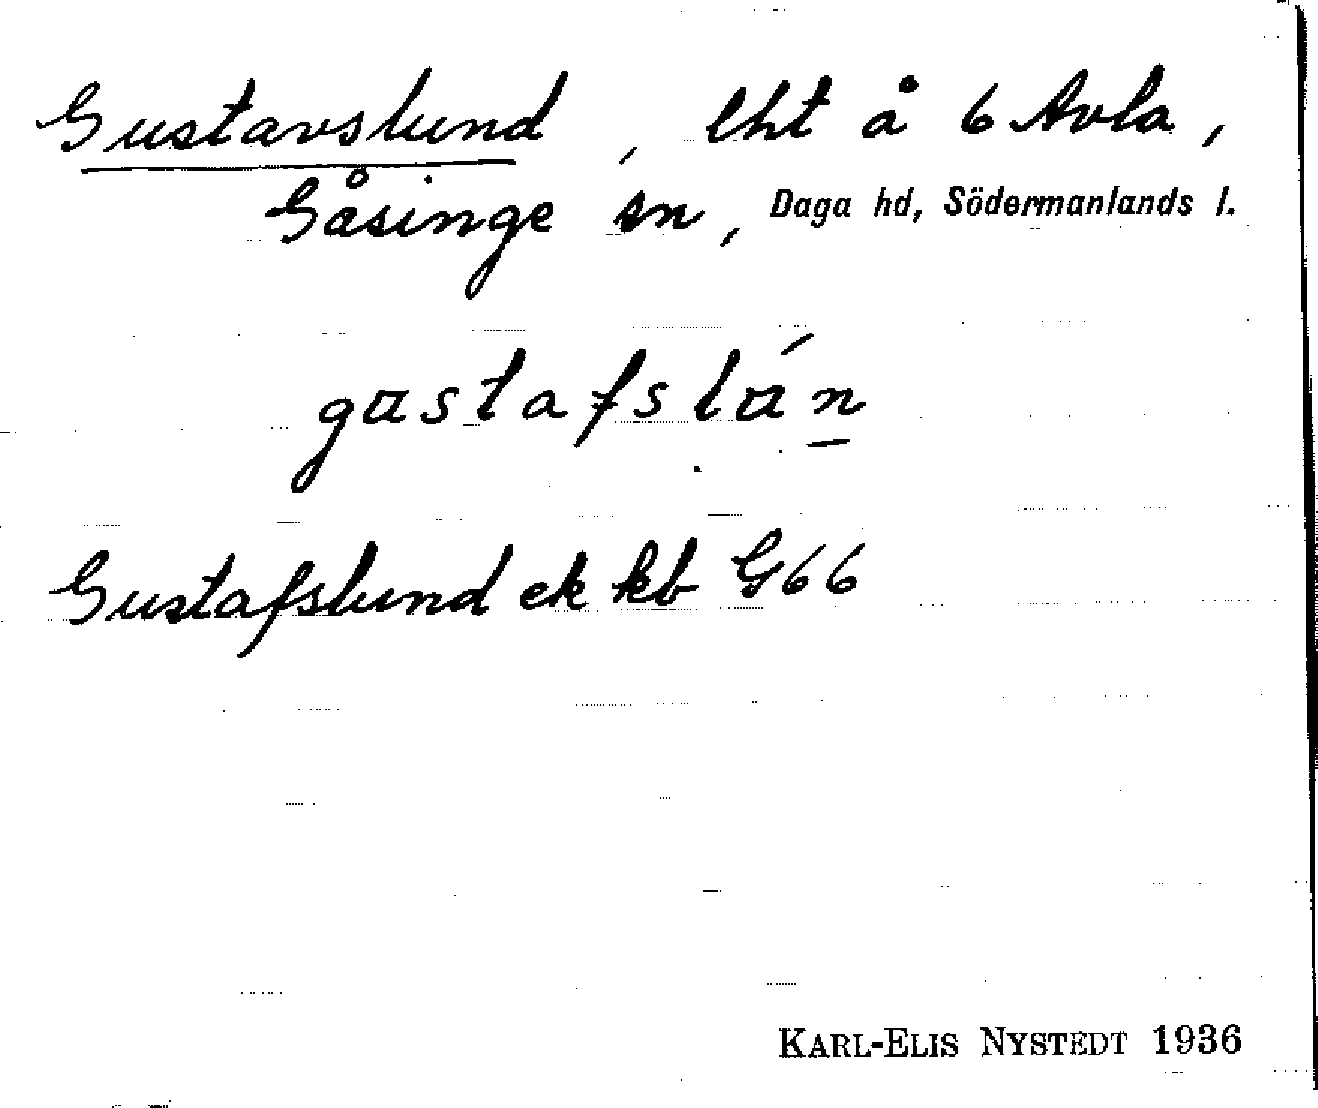 Gustavslund, lht å 6 Avla,
Gåsinge sn, Daga hd, Södermanlands l.
gustafslún
Gustafslund ek kb G66
KARL-ELIS NYSTEDT 1936